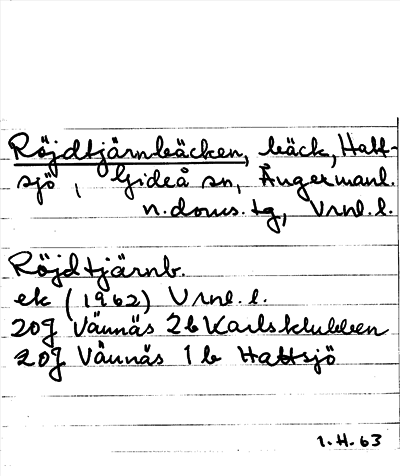 Röjdtjärnbäcken, bäck, Hatt-
sjö, Gideå sn, Ångermanl.
n. doms. tg, Vrnl. l.
Röjdtjärnb.
ek (1962) Vrnl. l.
20J Vännäs 2b Karlsklubben
20J Vännäs 1b Hattsjö
1.H.63